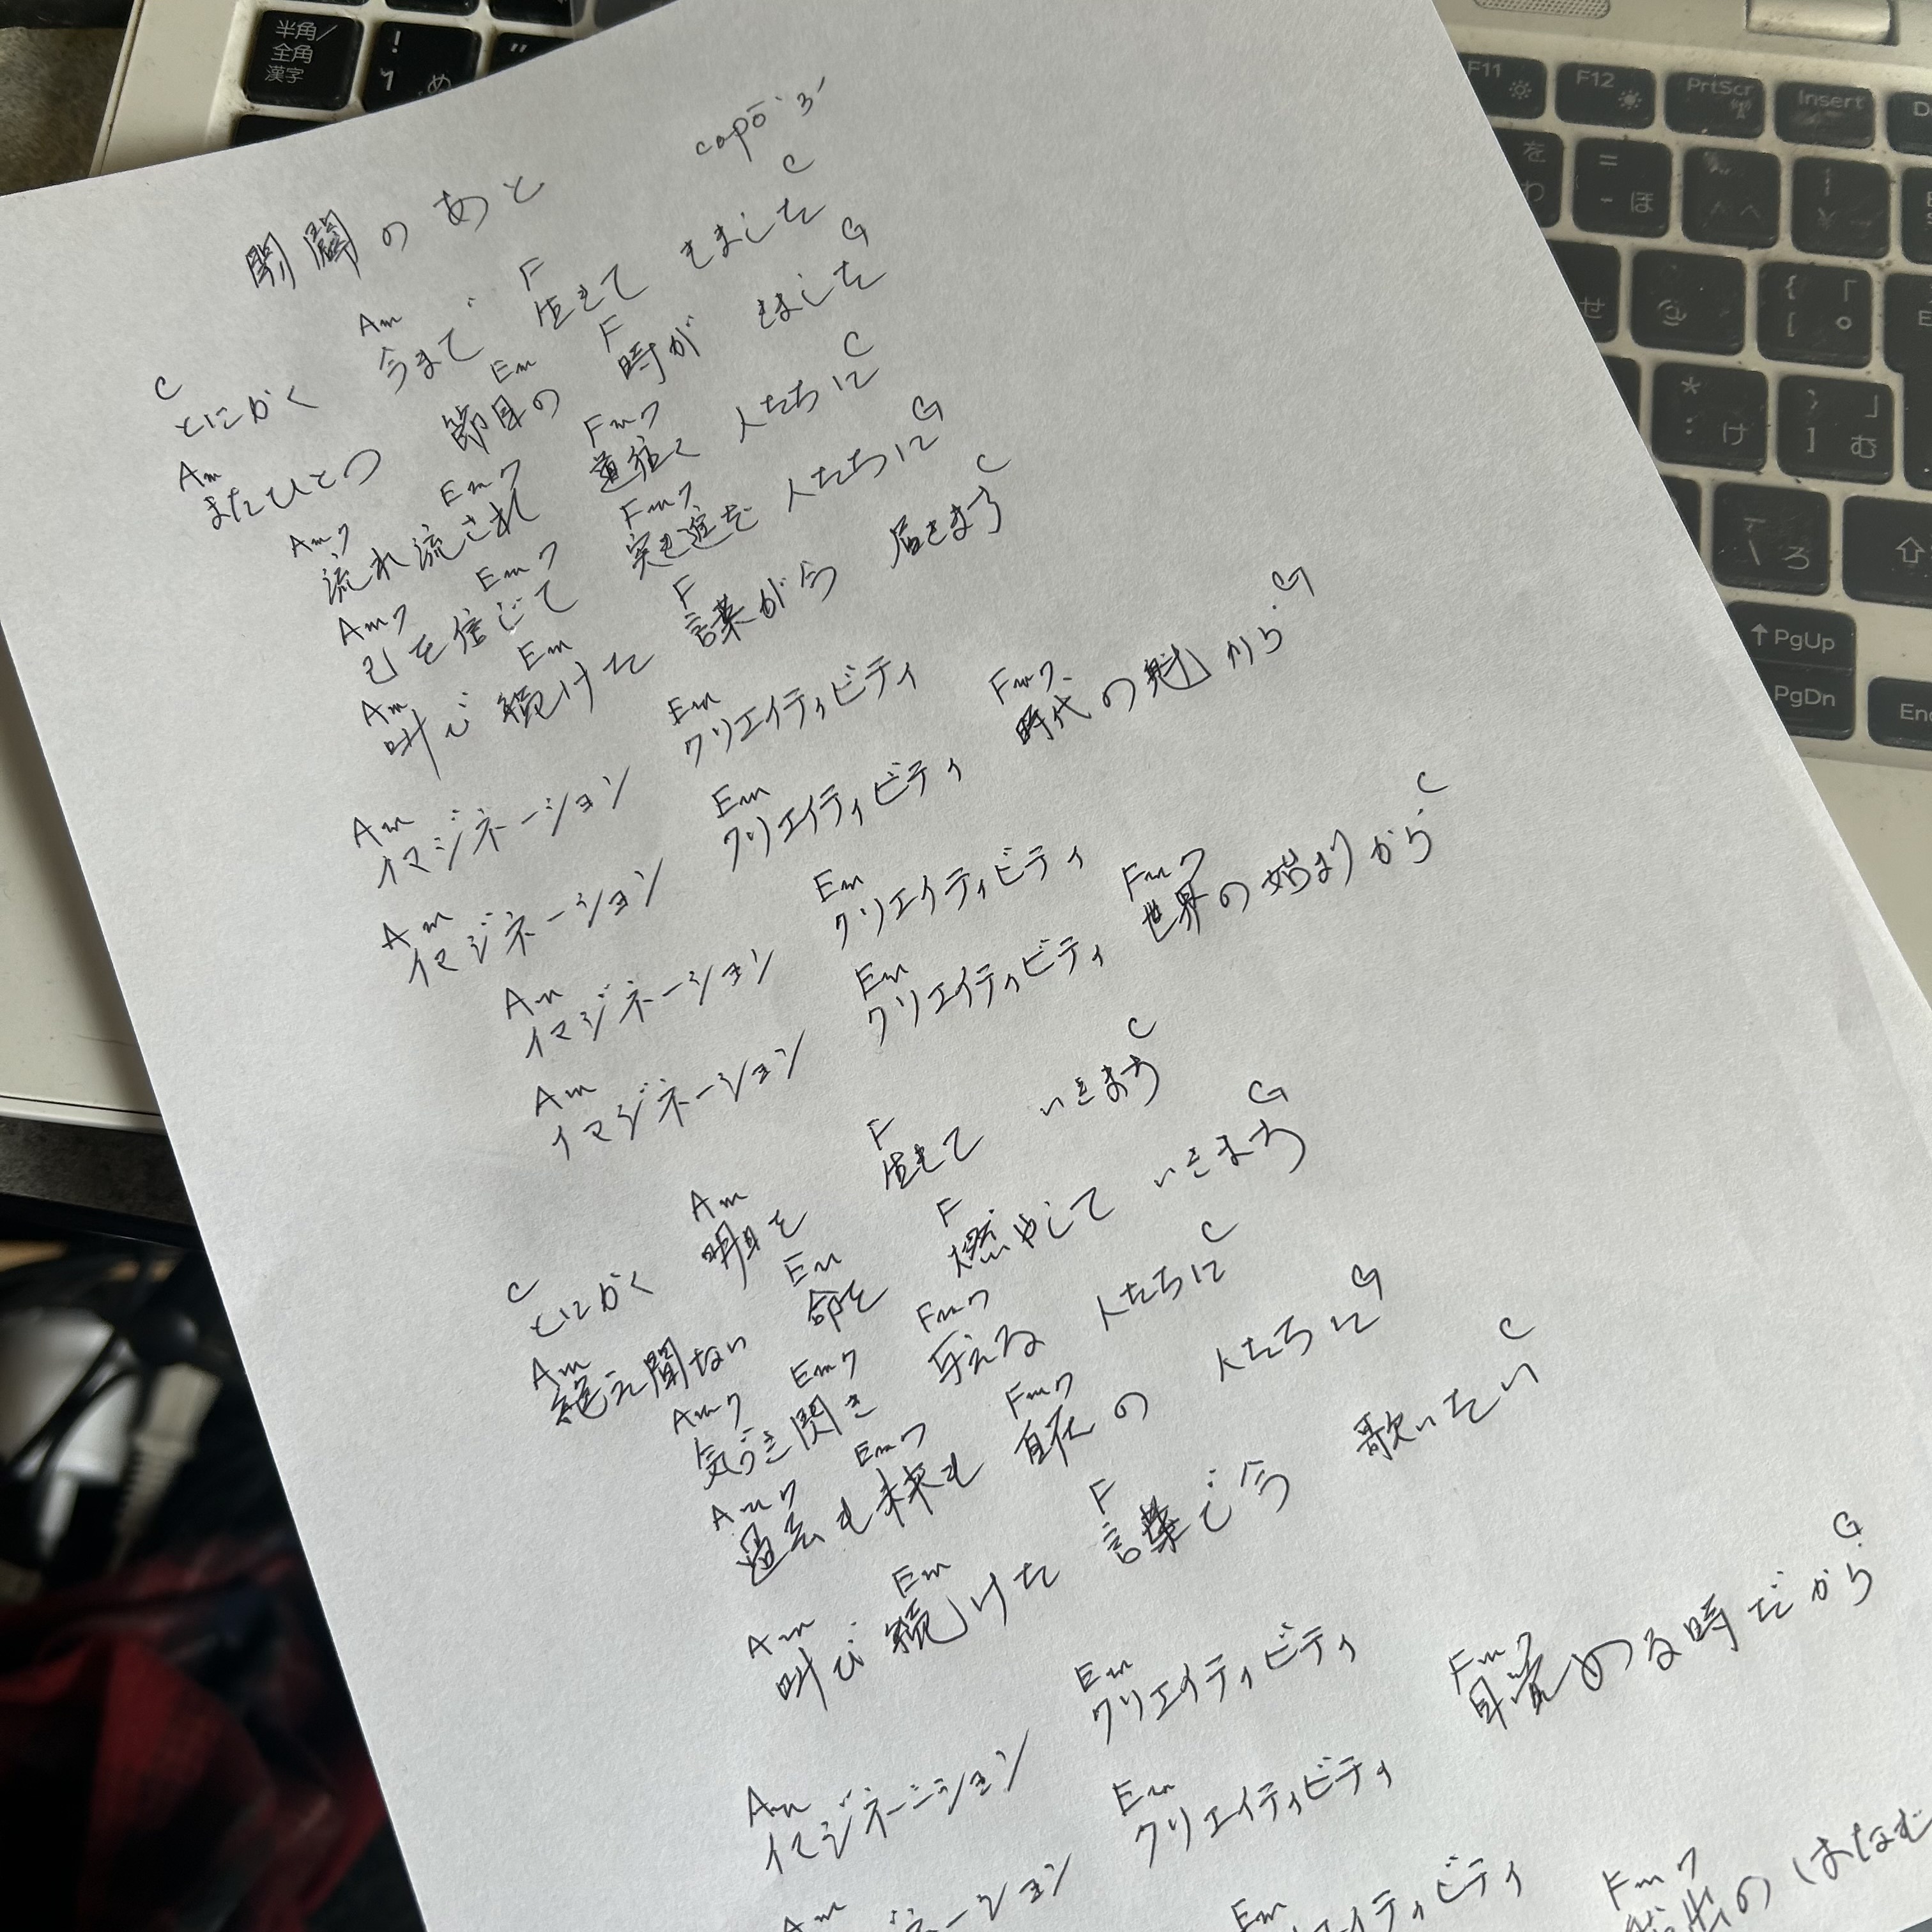 開闢のあと capo 3
C Am F C
とにかく 今まで 生きて きました
Am Em F G
またひとつ 節目の 時が きました
Am7 Em7 Fm7 C
流れ流され 道往く 人たちに
Am7 Em7 Fm7 G
己を信じて 突き進む 人たちに
Am Em F C
叫び続けた 言葉が今 届きます
Am Em
イマジネーション クリエイティビティ
Am Em Fm7 G
イマジネーション クリエイティビティ 時代の魁から
Am Em
イマジネーション クリエイティビティ
Am Em Fm7 C
イマジネーション クリエイティビティ 世界の始まりから
C Am F C
とにかく 明日を 生きて いきます
Am Em F G
絶え間ない 命を 燃やして いきます
Am7 Em7 Fm7 C
気づき閃き 与える 人たちに
Am7 Em7 Fm7 G
過去も未来も 自在の 人たちに
Am Em F C
叫び続けた 言葉で今 歌いたい
Am Em
イマジネーション クリエイティビティ
Am Em Fm7 G
イマジネーション クリエイティビティ 目覚める時だから
Em Fm7
ティビティ のはなむ
半角/全角 漢字
! 1 ぬ
"
F11
F12
PrtScr
Insert
を わ
= - ほ
^ へ
| ¥ ー
せ
@ ゛
{ 「 [ ゜
* : け
} 」 ] む
\ ろ
↑ PgUp
PgDn